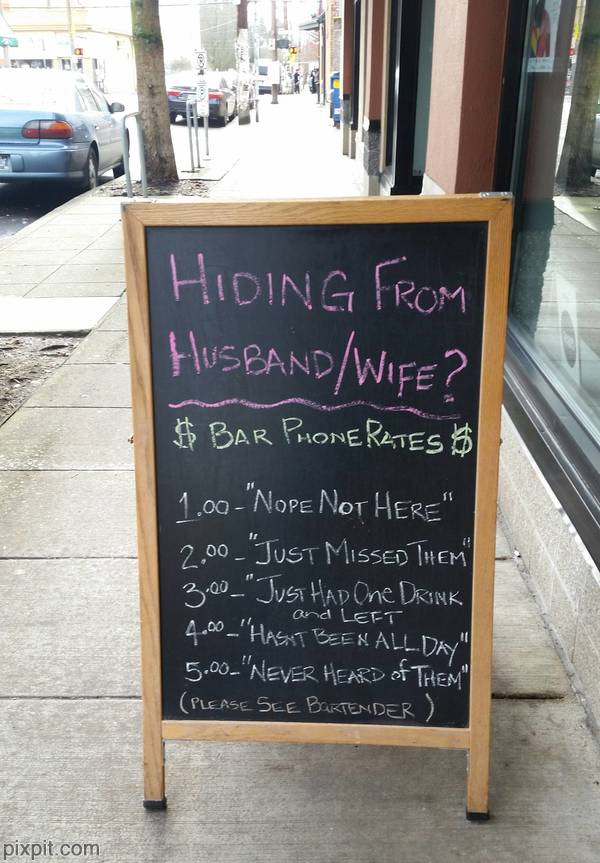 HIDING FROM
HUSBAND/WIFE?
$ BAR PHONE RATES $
1.00 - "NOPE NOT HERE"
2.00 - "JUST MISSED THEM"
3.00 - "JUST HAD ONE DRINK
and LEFT
4.00 - "HASNT BEEN ALL DAY"
5.00 - "NEVER HEARD of THEM"
(PLEASE SEE BARTENDER)
pixpit.com